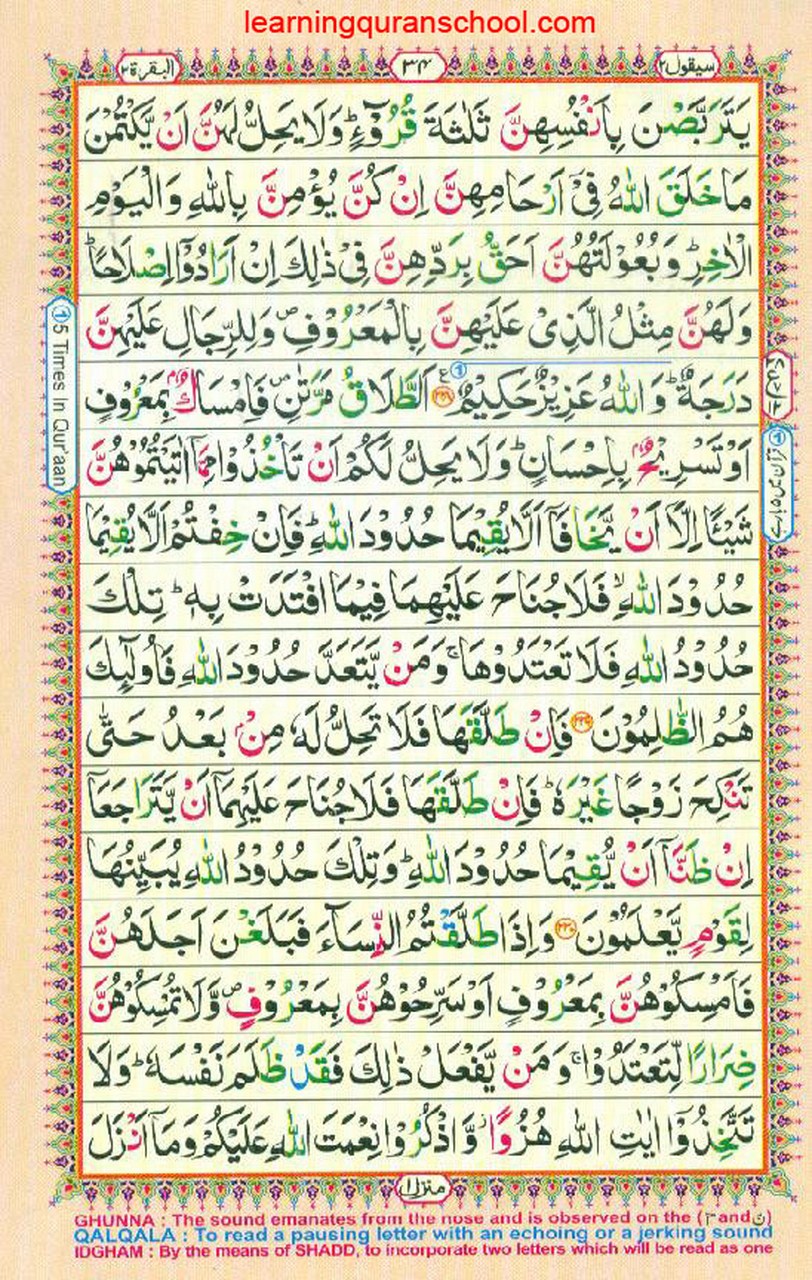 learningquranschool.com
سيقول٢ ٣٤ البقرة٢
يَتَرَبَّصْنَ بِاَنْفُسِهِنَّ ثَلٰثَةَ قُرُوْٓءٍ ؕ وَلَا يَحِلُّ لَهُنَّ اَنْ يَّكْتُمْنَ
مَا خَلَقَ اللّٰهُ فِىْٓ اَرْحَامِهِنَّ اِنْ كُنَّ يُؤْمِنَّ بِاللّٰهِ وَالْيَوْمِ
الْاٰخِرِ ؕ وَبُعُوْلَتُهُنَّ اَحَقُّ بِرَدِّهِنَّ فِىْ ذٰلِكَ اِنْ اَرَادُوْٓا اِصْلَاحًا ؕ
وَلَهُنَّ مِثْلُ الَّذِىْ عَلَيْهِنَّ بِالْمَعْرُوْفِ ۪ وَلِلرِّجَالِ عَلَيْهِنَّ
دَرَجَةٌ ؕ وَاللّٰهُ عَزِيْزٌ حَكِيْمٌ ۧ ﴿۲۲۸﴾ اَلطَّلَاقُ مَرَّتٰنِ ۪ فَاِمْسَاكٌۢ بِمَعْرُوْفٍ
اَوْ تَسْرِيْحٌۢ بِاِحْسَانٍ ؕ وَلَا يَحِلُّ لَكُمْ اَنْ تَاْخُذُوْا مِمَّآ اٰتَيْتُمُوْهُنَّ
شَيْئًا اِلَّآ اَنْ يَّخَافَآ اَلَّا يُقِيْمَا حُدُوْدَ اللّٰهِ ؕ فَاِنْ خِفْتُمْ اَلَّا يُقِيْمَا
حُدُوْدَ اللّٰهِ ۙ فَلَا جُنَاحَ عَلَيْهِمَا فِيْمَا افْتَدَتْ بِهٖ ؕ تِلْكَ
حُدُوْدُ اللّٰهِ فَلَا تَعْتَدُوْهَا ۚ وَمَنْ يَّتَعَدَّ حُدُوْدَ اللّٰهِ فَاُولٰٓئِكَ
هُمُ الظّٰلِمُوْنَ ﴿۲۲۹﴾ فَاِنْ طَلَّقَهَا فَلَا تَحِلُّ لَهٗ مِنْۢ بَعْدُ حَتّٰى
تَنْكِحَ زَوْجًا غَيْرَهٗ ؕ فَاِنْ طَلَّقَهَا فَلَا جُنَاحَ عَلَيْهِمَآ اَنْ يَّتَرَاجَعَآ
اِنْ ظَنَّآ اَنْ يُّقِيْمَا حُدُوْدَ اللّٰهِ ؕ وَتِلْكَ حُدُوْدُ اللّٰهِ يُبَيِّنُهَا
لِقَوْمٍ يَّعْلَمُوْنَ ﴿۲۳۰﴾ وَاِذَا طَلَّقْتُمُ النِّسَآءَ فَبَلَغْنَ اَجَلَهُنَّ
فَاَمْسِكُوْهُنَّ بِمَعْرُوْفٍ اَوْ سَرِّحُوْهُنَّ بِمَعْرُوْفٍ ۪ وَّلَا تُمْسِكُوْهُنَّ
ضِرَارًا لِّتَعْتَدُوْا ۚ وَمَنْ يَّفْعَلْ ذٰلِكَ فَقَدْ ظَلَمَ نَفْسَهٗ ؕ وَلَا
تَتَّخِذُوْٓا اٰيٰتِ اللّٰهِ هُزُوًا ؗ وَّاذْكُرُوْا نِعْمَتَ اللّٰهِ عَلَيْكُمْ وَمَآ اَنْزَلَ
① 5 Times In Qur'aan
منزل١
GHUNNA : The sound emanates from the nose and is observed on the (م and ن)
QALQALA : To read a pausing letter with an echoing or a jerking sound
IDGHAM : By the means of SHADD, to incorporate two letters which will be read as one